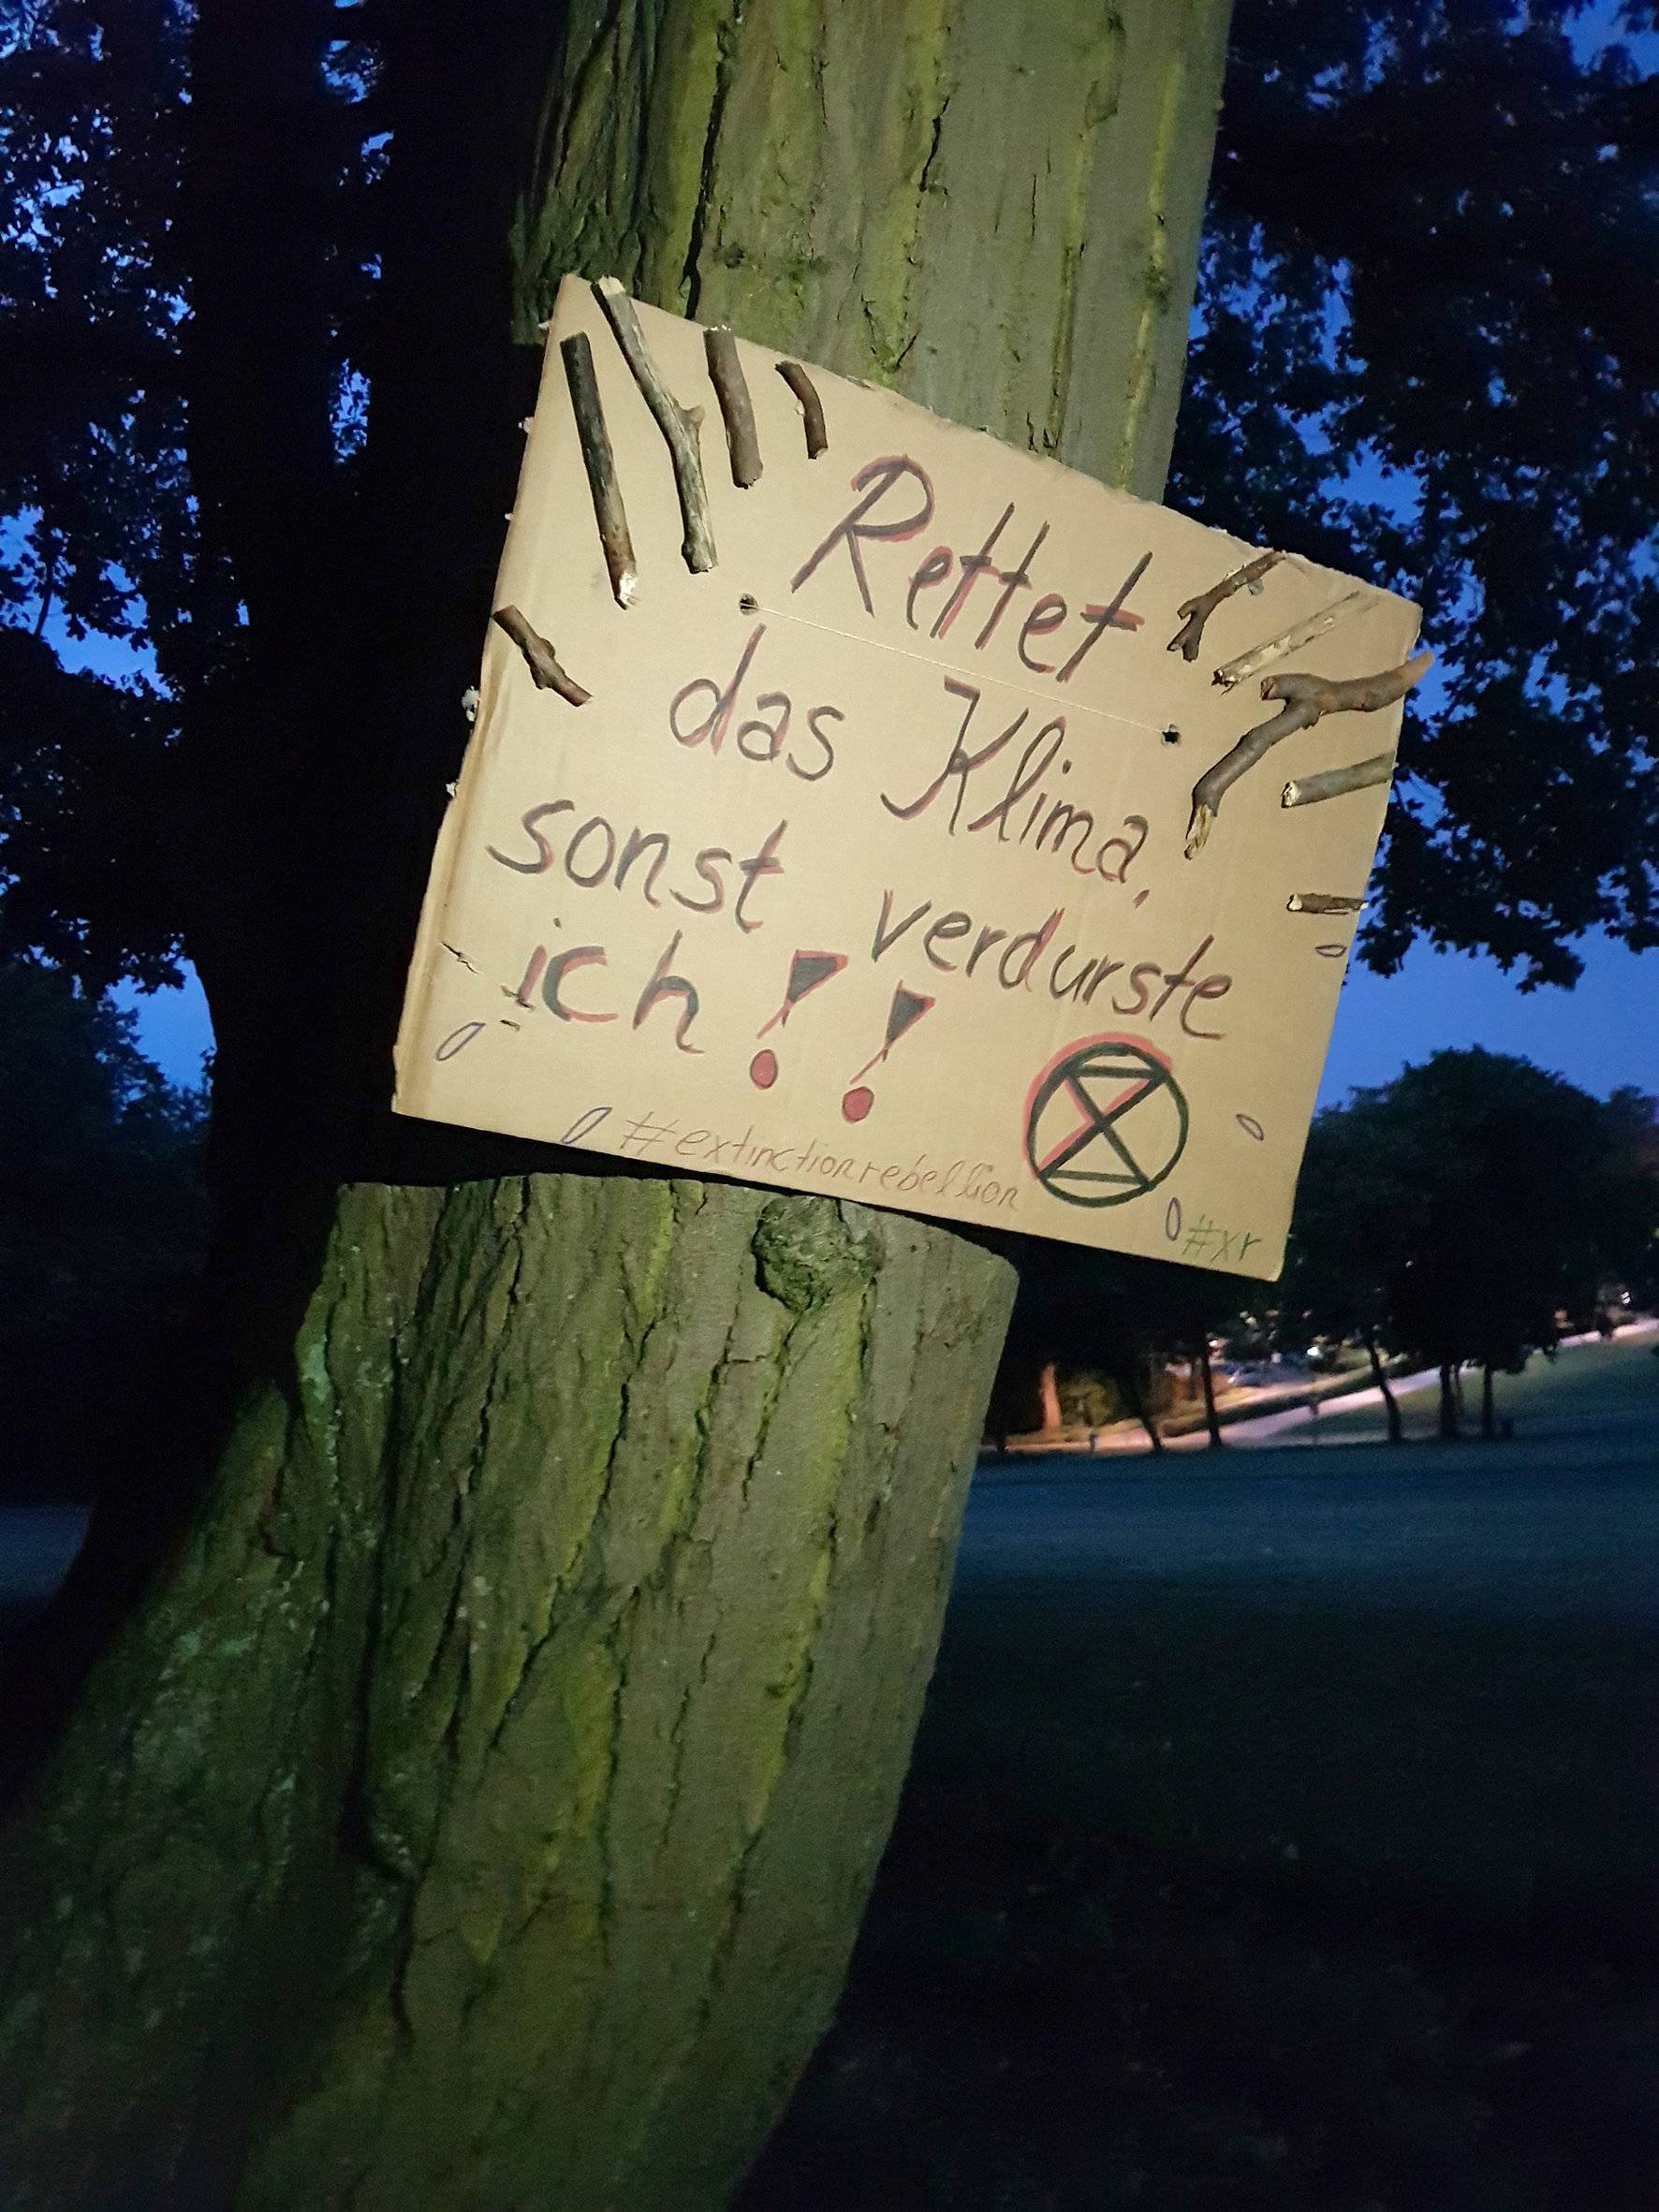 Rettet
das Klima,
sonst verdurste
ich!!
#extinctionrebellion
#xr